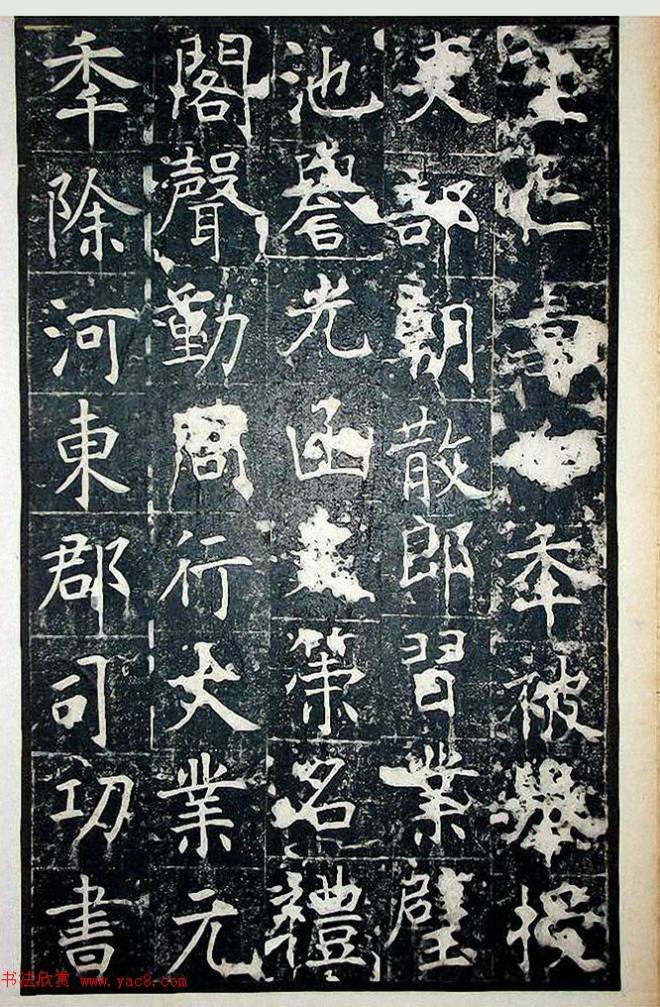 生仁壽年被舉授
吏部朝散郎習業璧
池譽光函丈策名禮
閣聲動周行大業元
年除河東郡司功書
书法欣赏 www.yac8.com